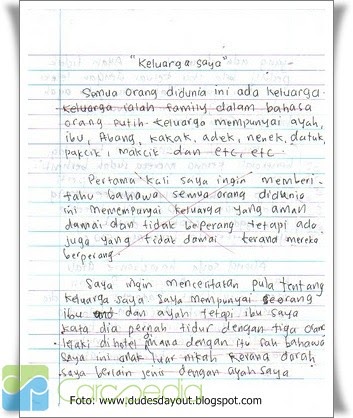 "Keluarga saya"
Semua orang didunia ini ada keluarga.
Keluarga ialah family dalam bahasa
orang putih. Keluarga mempunyai ayah,
ibu, Abang, kakak, adek, nenek, datuk,
pakcik, Makcik dan etc, etc.
Pertama kali saya ingin memberi-
tahu bahawa semua orang didunia
ini memempunyai keluarga yang aman
damai dan tidak beperang tetapi ada
juga yang tidak damai kerana mereka
berperang.
Saya ingin menceritakan pula tentang
keluarga saya. Saya mempunyai seorang
ibu dan ayah tetapi ibu saya
kata dia pernah tidur dengan tiga orang
lelaki dihotel mana dengan itu sah bahawa
saya ini anak luar nikah kerana darah
saya berlain jenis dengan ayah saya
Carcpedia
Foto: www.dudesdayout.blogspot.com